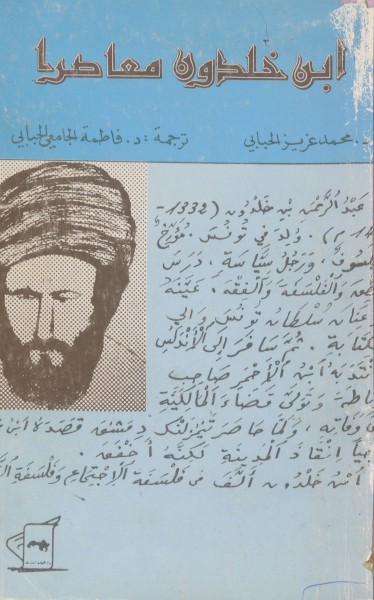 ابن خلدون معاصرا
د. محمد عزيز الحبابي
ترجمة: د. فاطمة الجامعي الحبابي
عَبْدُ الرَّحْمَن بْن خَلْدُون (1332-
م). وُلِدَ في تُونِسَ. مُؤَرِّخٌ
وَرَجُلُ سِيَّاسَةٍ، دَرَسَ
وَالْفَلْسَفَةَ وَالْفِقْهَ. عَيَّنَهُ
عنان سُلْطَان تُونِسَ، والي
ثُمَّ سَافَرَ إِلَى الْأَنْدَلُسِ
ابْنُ الْأَحْمَرِ صَاحِب
وَتَوَلَّى قَضَاءَ الْمَالِكِيَّةِ
وَفَاتِهِ، وَلَمَّا حَاصَرَ تَيْمُورْلَنْك دِمَشْقَ قَصَدَهُ ابْنُ
إِنْقَاذَ الْمَدِينَةِ لَكِنَّهُ أَخْفَقَ.
ابْنُ خَلْدُون أَلَّفَ في فَلْسَفَةِ الِاجْتِمَاعِ وَفَلْسَفَةِ